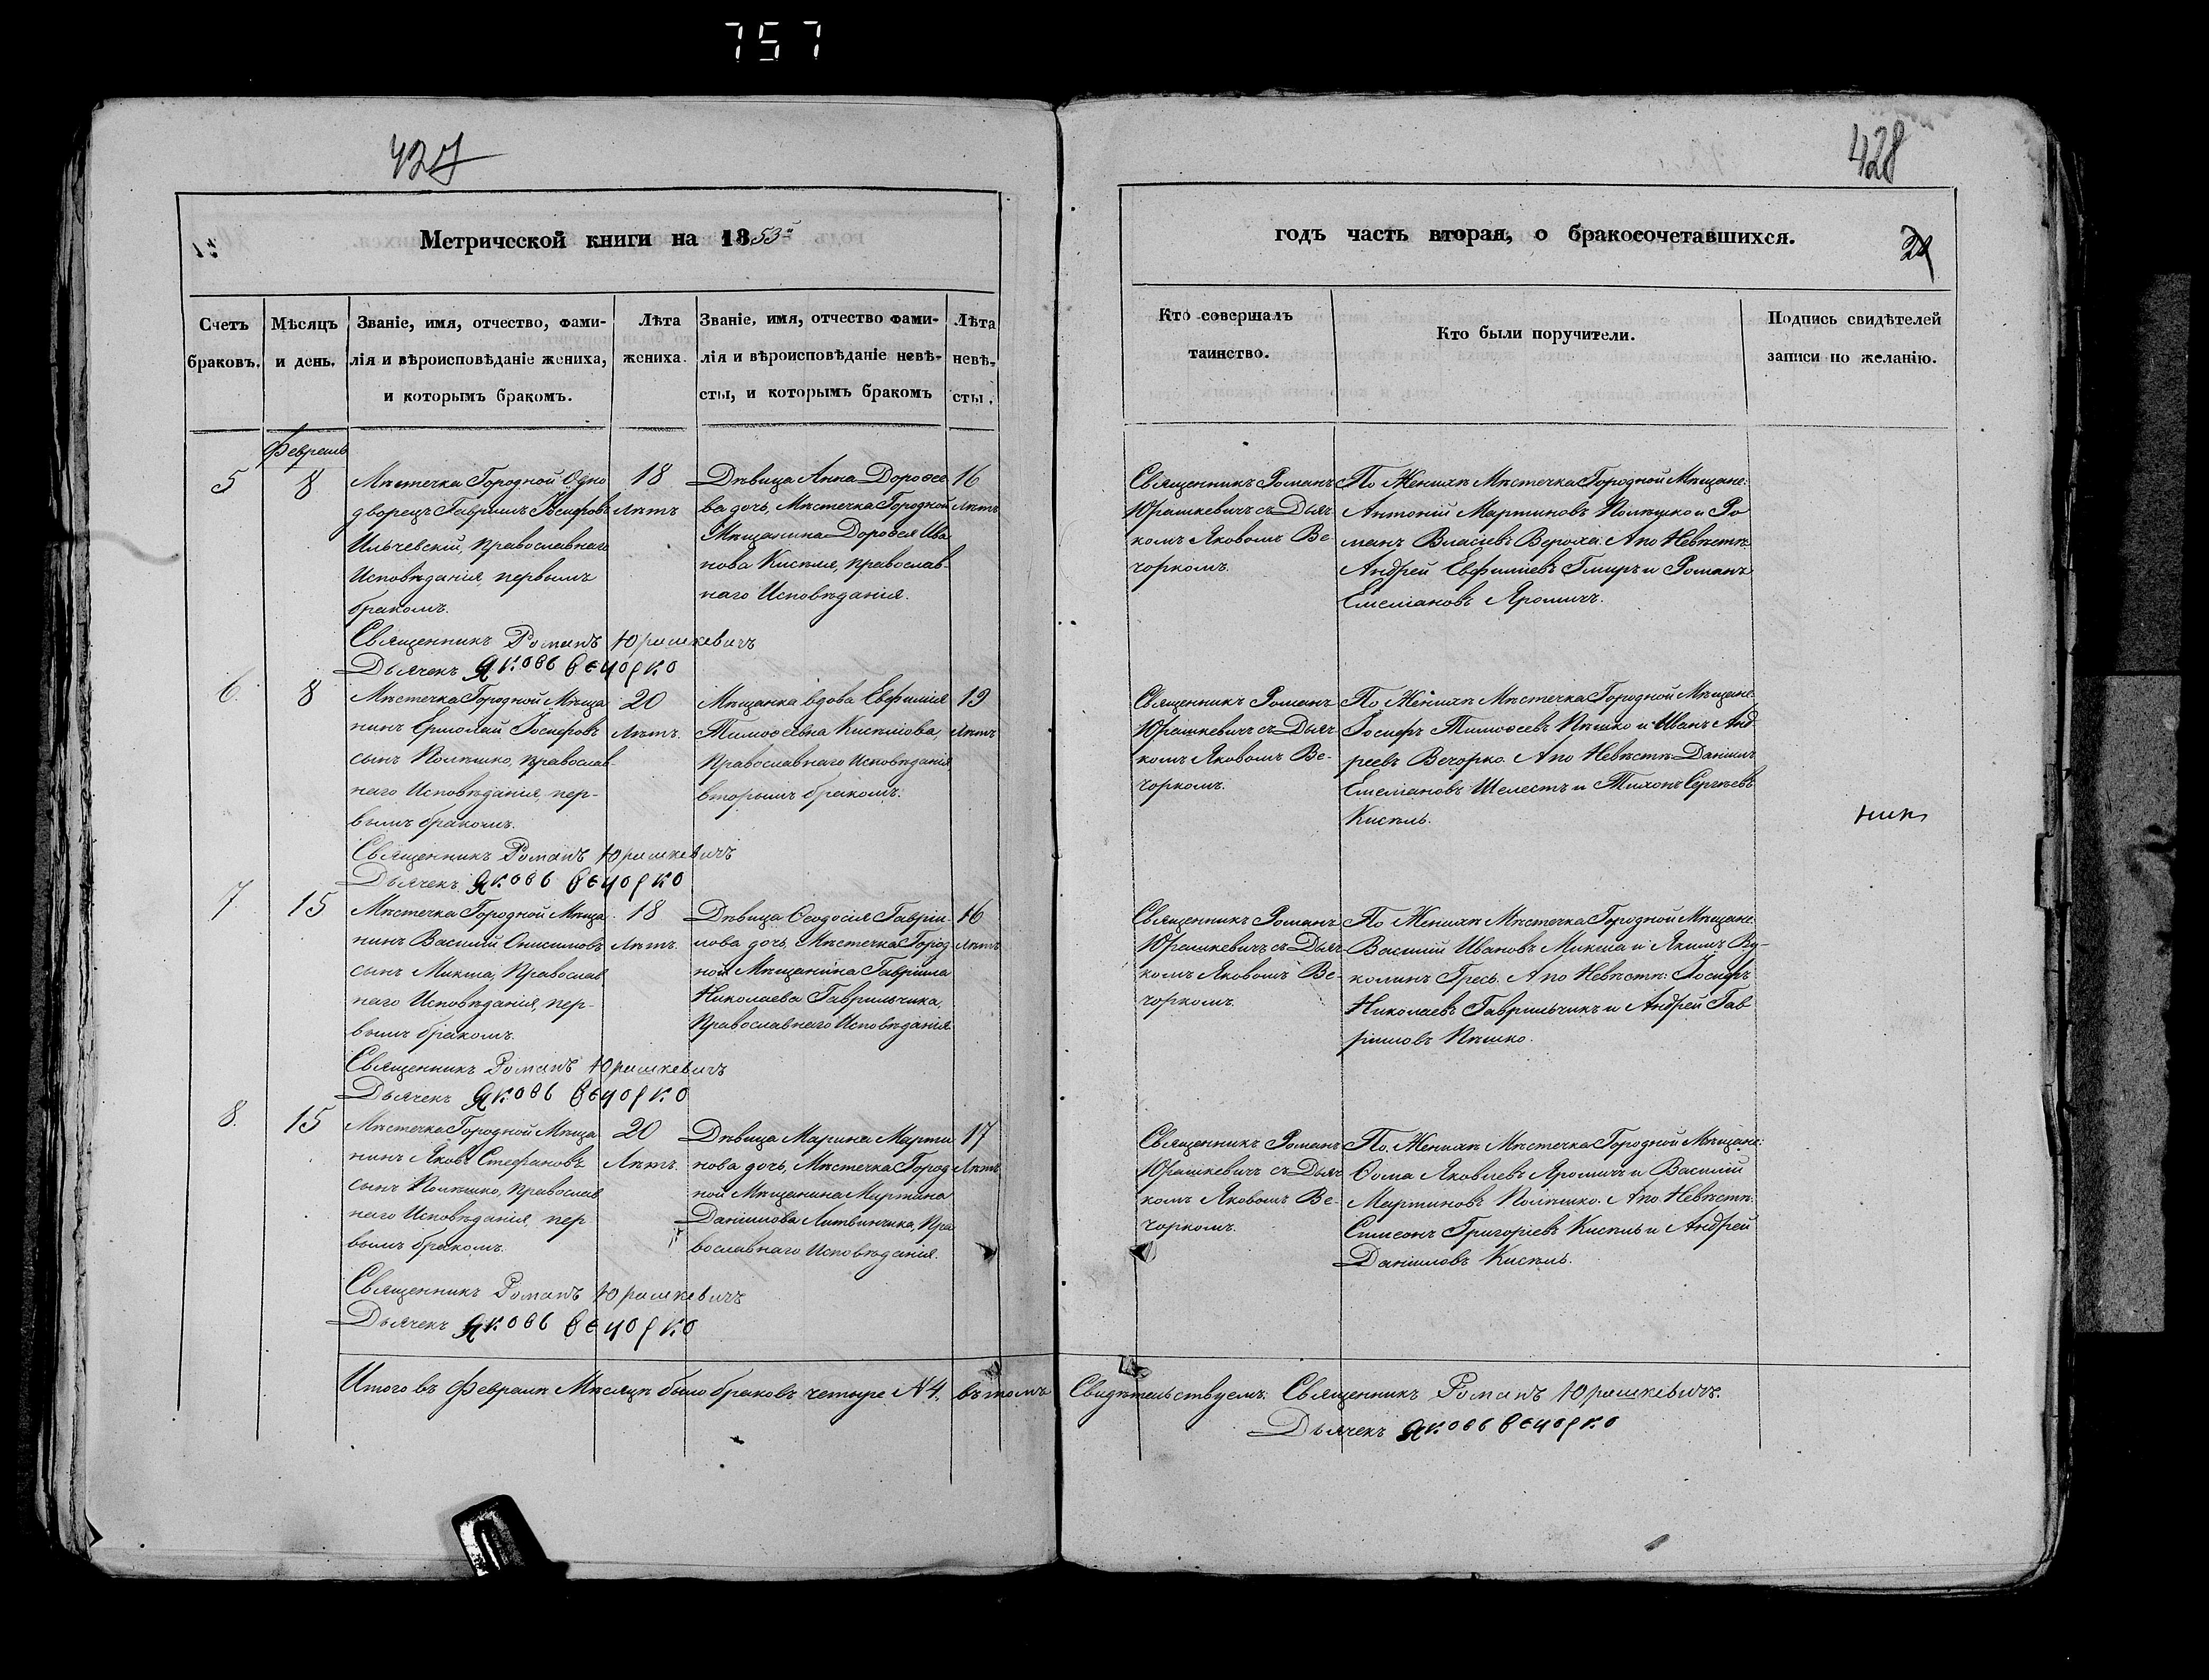 757
427
428
Метрической книги на 1853й
годъ часть вторая, о бракосочетавшихся.
Счетъ браковъ.
Мѣсяцъ и день.
Званіе, имя, отчество, фами-
лія и вѣроисповѣданіе жениха,
и которымъ бракомъ.
Лѣта
жениха.
Званіе, имя, отчество фами-
лія и вѣроисповѣданіе невѣ-
сты, и которымъ бракомъ
Лѣта
невѣ-
сты.
Кто совершалъ
таинство.
Кто были поручители.
Подпись свидѣтелей
записи по желанію.
Февраль
5
8
Мѣстечка Городной Одно
дворецъ Гавріилъ Іосифовъ
Ильчевскій, православнаго
Исповѣданія, первымъ
бракомъ.
18
Лѣтъ
Дѣвица Анна Дорофее
ва дочь, Мѣстечка Городной
Мѣщанина Дорофея Ива
нова Кисѣля, православ-
наго Исповѣданія.
16
Лѣтъ
Священникъ Романъ
Юрашкевичъ съ Дьяч
комъ Яковомъ Ве-
чоркомъ.
По Женихѣ Мѣстечка Городной Мѣщане:
Антоній Мартиновъ Полѣшко и Ро
манъ Власіевъ Вероха. А по Невѣстѣ:
Андрей Евфиміевъ Гмиръ и Романъ
Емеліановъ Яромичъ.
Священникъ Романъ Юрашкевичъ
Дьячекъ Яковъ Вечорко
6.
8
Мѣстечка Городной Мѣща
нинъ Ермолай Іосифовъ
сынъ Полѣшко, православ-
наго Исповѣданія, пер-
вымъ бракомъ.
20
Лѣтъ.
Мѣщанка вдова Евфимія
Тимофеевна Кисѣліова,
Православнаго Исповѣданія
вторымъ бракомъ.
19
Лѣтъ
Священникъ Романъ
Юрашкевичъ съ Дьяч
комъ Яковомъ Ве-
чоркомъ.
По Женихѣ Мѣстечка Городной Мѣщане:
Іосифъ Тимофеевъ Пѣшко и Иванъ Анд
реевъ Вечорко. А по Невѣстѣ: Даніилъ
Емеліановъ Шелестъ и Тихонъ Сергѣевъ
Кисѣль.
Священникъ Романъ Юрашкевичъ
Дьячекъ Яковъ Вечорко
7
15
Мѣстечка Городной Мѣща
нинъ Василій Онисимовъ
сынъ Микша, Православ
наго Исповѣданія, пер-
вымъ бракомъ.
18
Лѣтъ.
Дѣвица Ѳеодосія Гавріи-
лова дочь, Мѣстечка Город
ной Мѣщанина Гавріила
Николаева Гаврильчика,
Православнаго Исповѣданія.
16
Лѣтъ
Священникъ Романъ
Юрашкевичъ съ Дьяч
комъ Яковомъ Ве-
чоркомъ.
По Женихѣ Мѣстечка Городной Мѣщане:
Василій Ивановъ Микша и Якимъ Ву-
колинъ Гресь. А по Невѣстѣ: Іосифъ
Николаевъ Гаврильчикъ и Андрей Гав
риловъ Пѣшко.
Священникъ Романъ Юрашкевичъ
Дьячекъ Яковъ Вечорко
8.
15
Мѣстечка Городной Мѣща
нинъ Яковъ Стефановъ
сынъ Полѣшко, Православ
наго Исповѣданія, пер
вымъ бракомъ.
20
Лѣтъ.
Дѣвица Марина Марти
нова дочь, Мѣстечка Город
ной Мѣщанина Мартина
Даніилова Литвинчика, Пра
вославнаго Исповѣданія.
17
Лѣтъ
Священникъ Романъ
Юрашкевичъ съ Дьяч
комъ Яковомъ Ве-
чоркомъ.
По Женихѣ Мѣстечка Городной Мѣщане:
Ѳома Яковлевъ Яромичъ и Василій
Мартиновъ Полѣшко. А по Невѣстѣ:
Симеонъ Григоріевъ Кисѣль и Андрей
Даніиловъ Кисѣль.
Священникъ Романъ Юрашкевичъ
Дьячекъ Яковъ Вечорко
Итого въ Февралѣ Мѣсяцѣ было браковъ четыре N 4. въ томъ Свидѣтельствуемъ: Священникъ Романъ Юрашкевичъ.
Дьячекъ Яковъ Вечорко